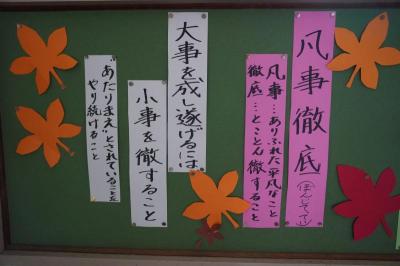 凡事徹底(ぼんじてってい)
凡事…ありふれた平凡なこと
徹底…とことん徹すること
大事を成し遂げるには
小事を徹すること
"あたりまえ"とされていることを
やり続けること